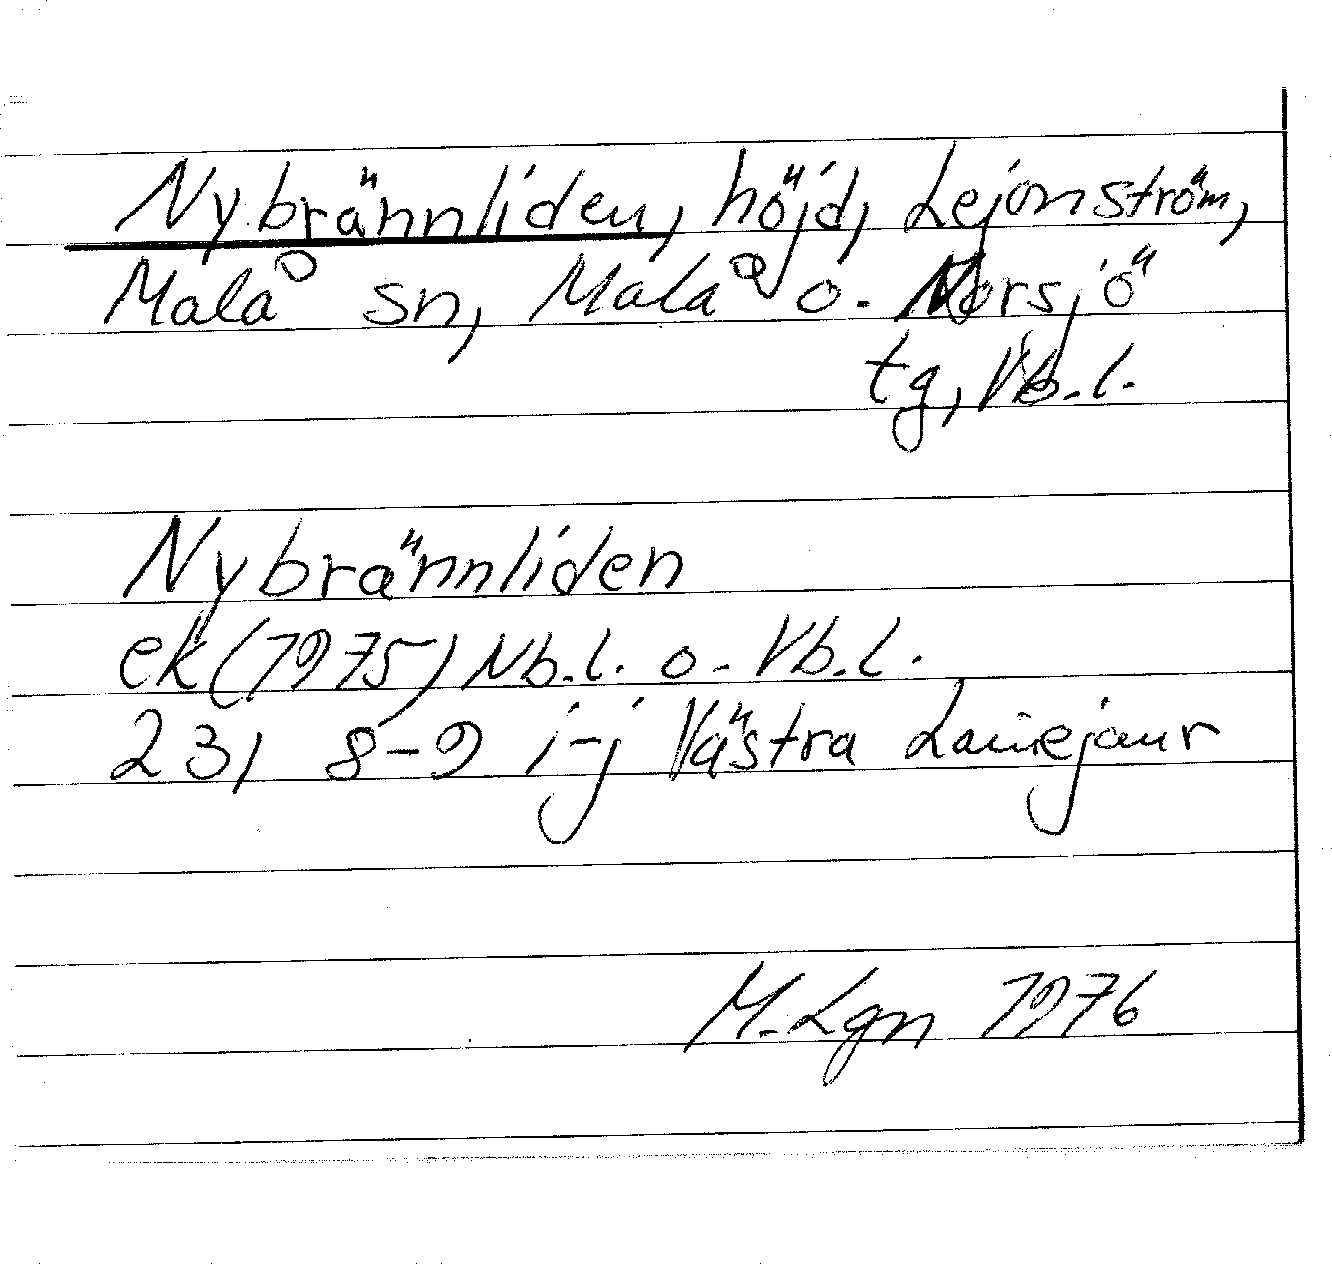 Nybrännliden, höjd, Lejonström,
Malå sn, Malå o. Norsjö
tg, Vb.l.
Nybrännliden
ek (1975) Nb.l. o. Vb.l.
231 8-9 i-j Västra Lainejaur
M. Lgn 1976